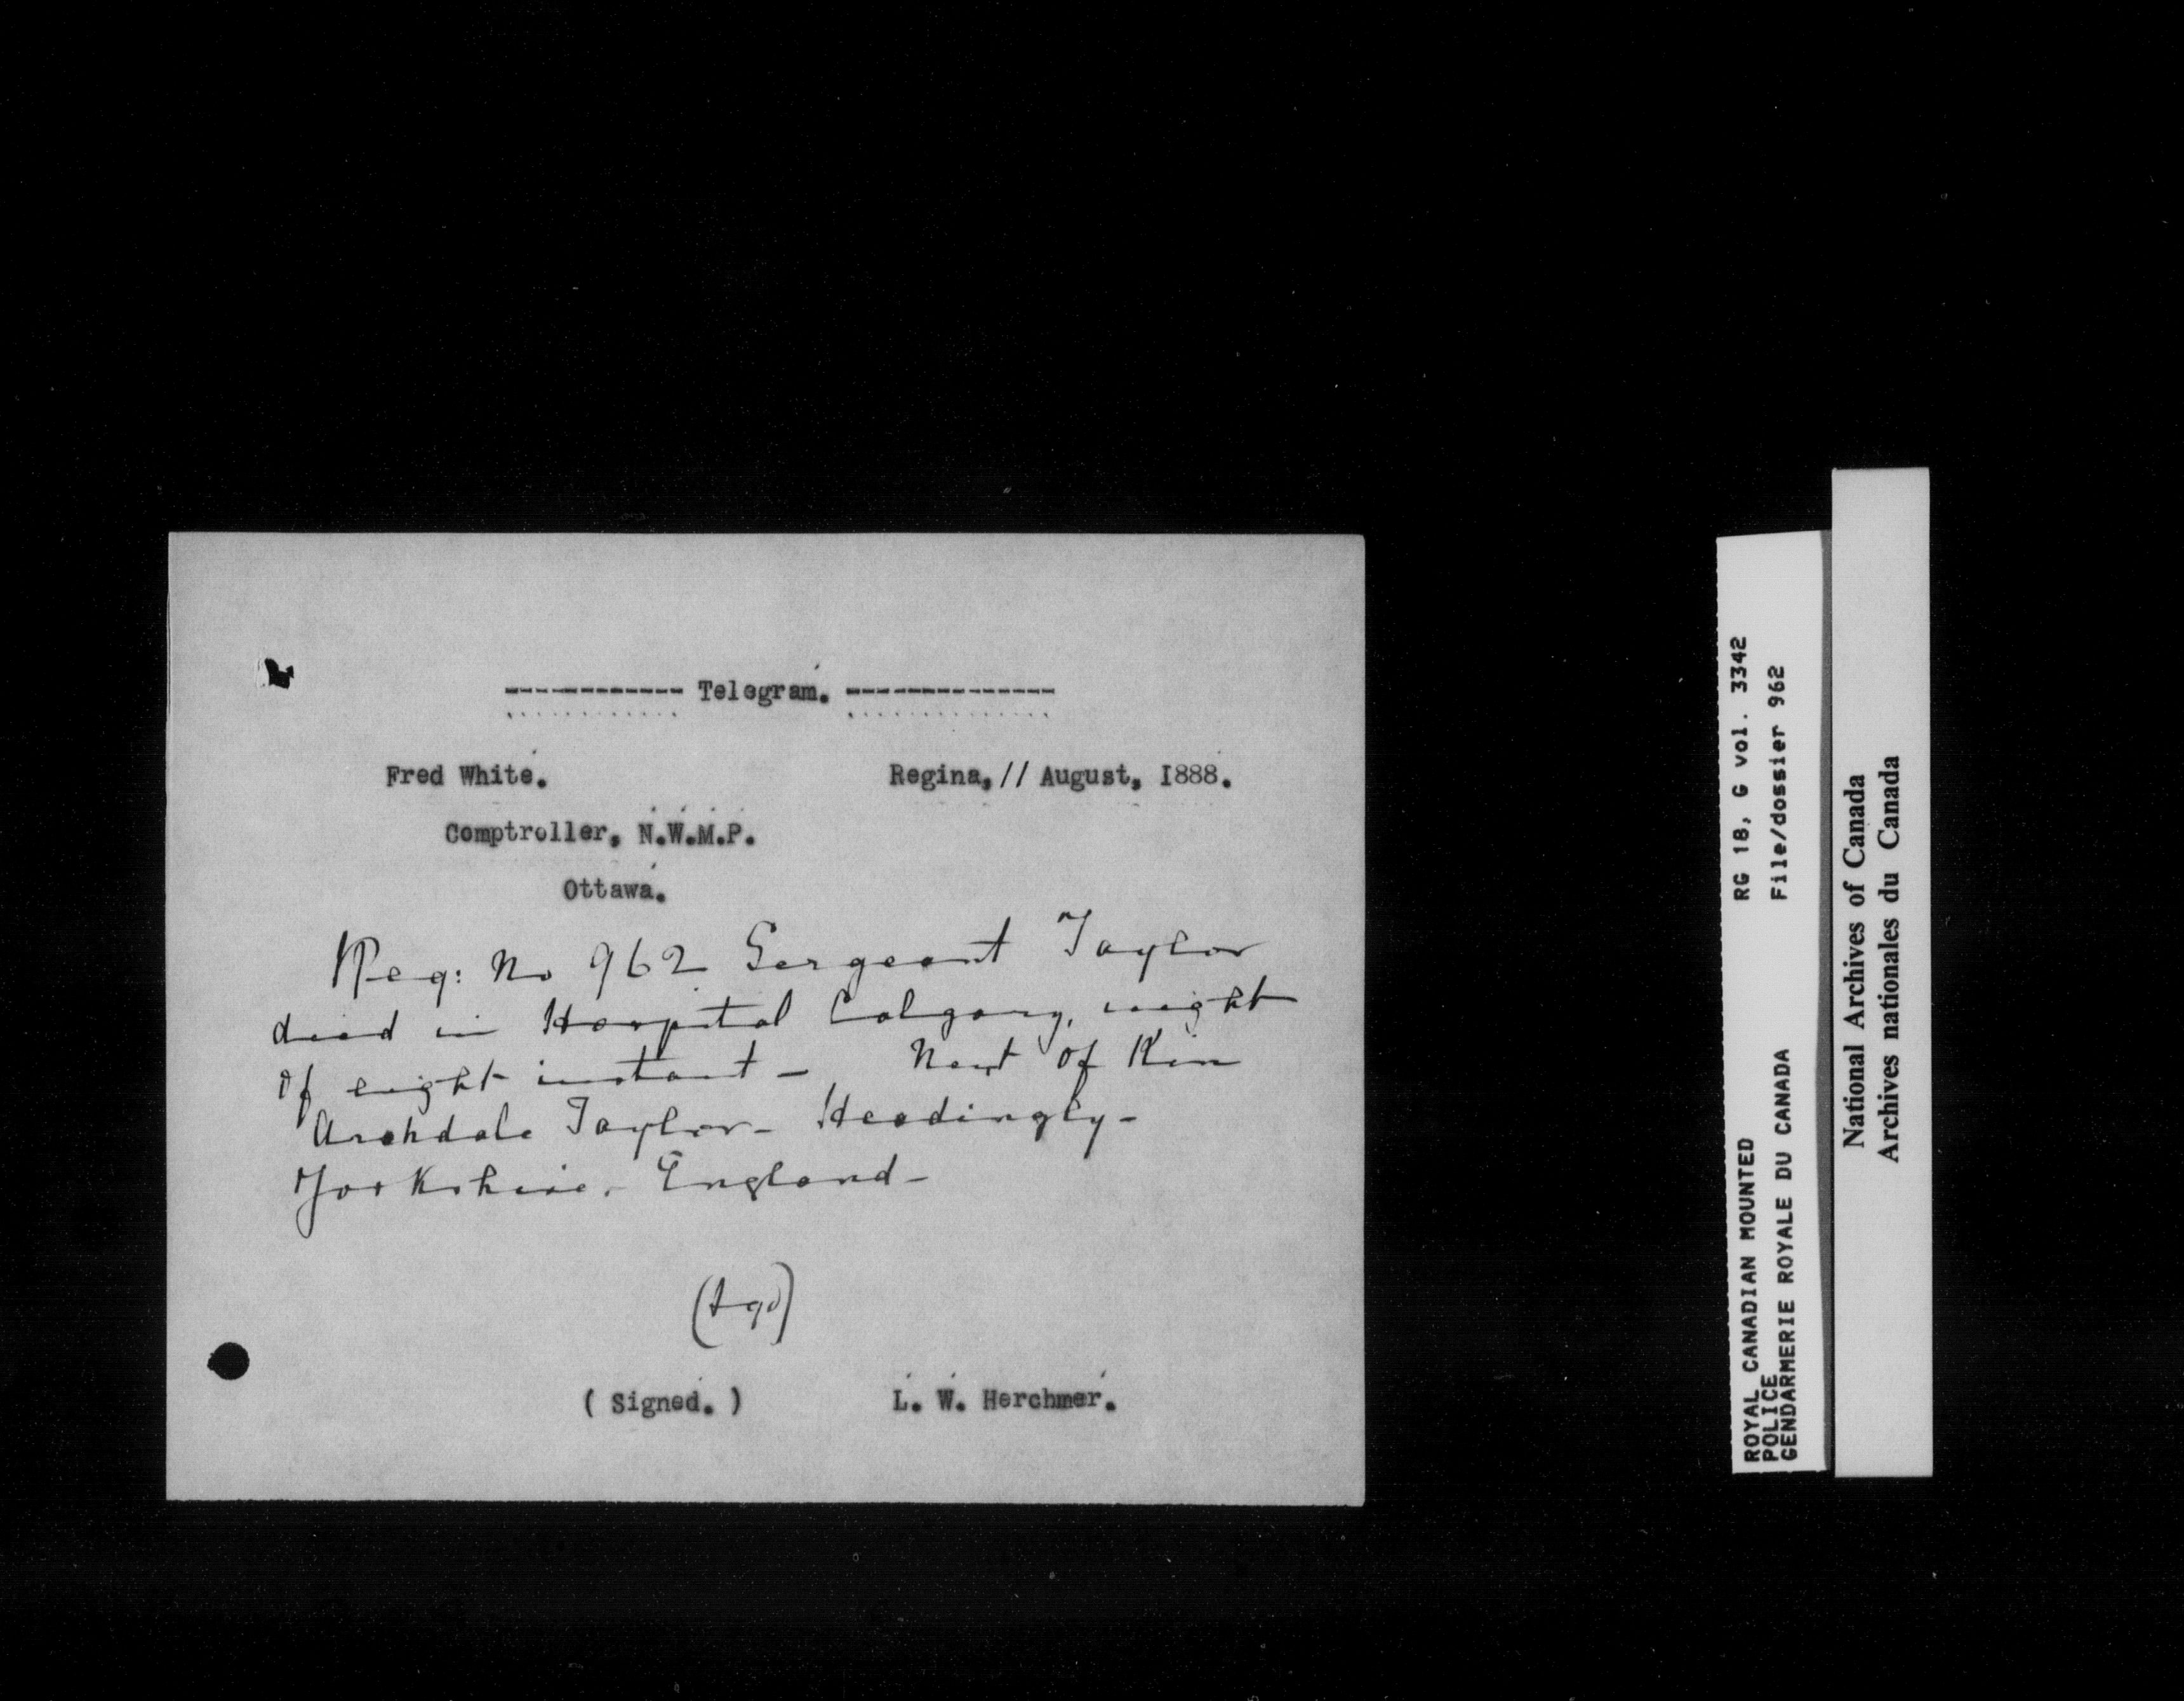 ----------- Telegram. -------------
Fred White. Regina, 11 August, 1888.
Comptroller, N.W.M.P.
Ottawa.
Reg: No 962 Sergeant Taylor
died in Hospital Calgary, night
of eight instant - Next of Kin
Archdale Taylor - Headingly -
Yorkshire, England -
( Signed. ) L. W. Herchmer.
RG 18, G vol. 3342
File/dossier 962
ROYAL CANADIAN MOUNTED
POLICE
GENDARMERIE ROYALE DU CANADA
National Archives of Canada
Archives nationales du Canada